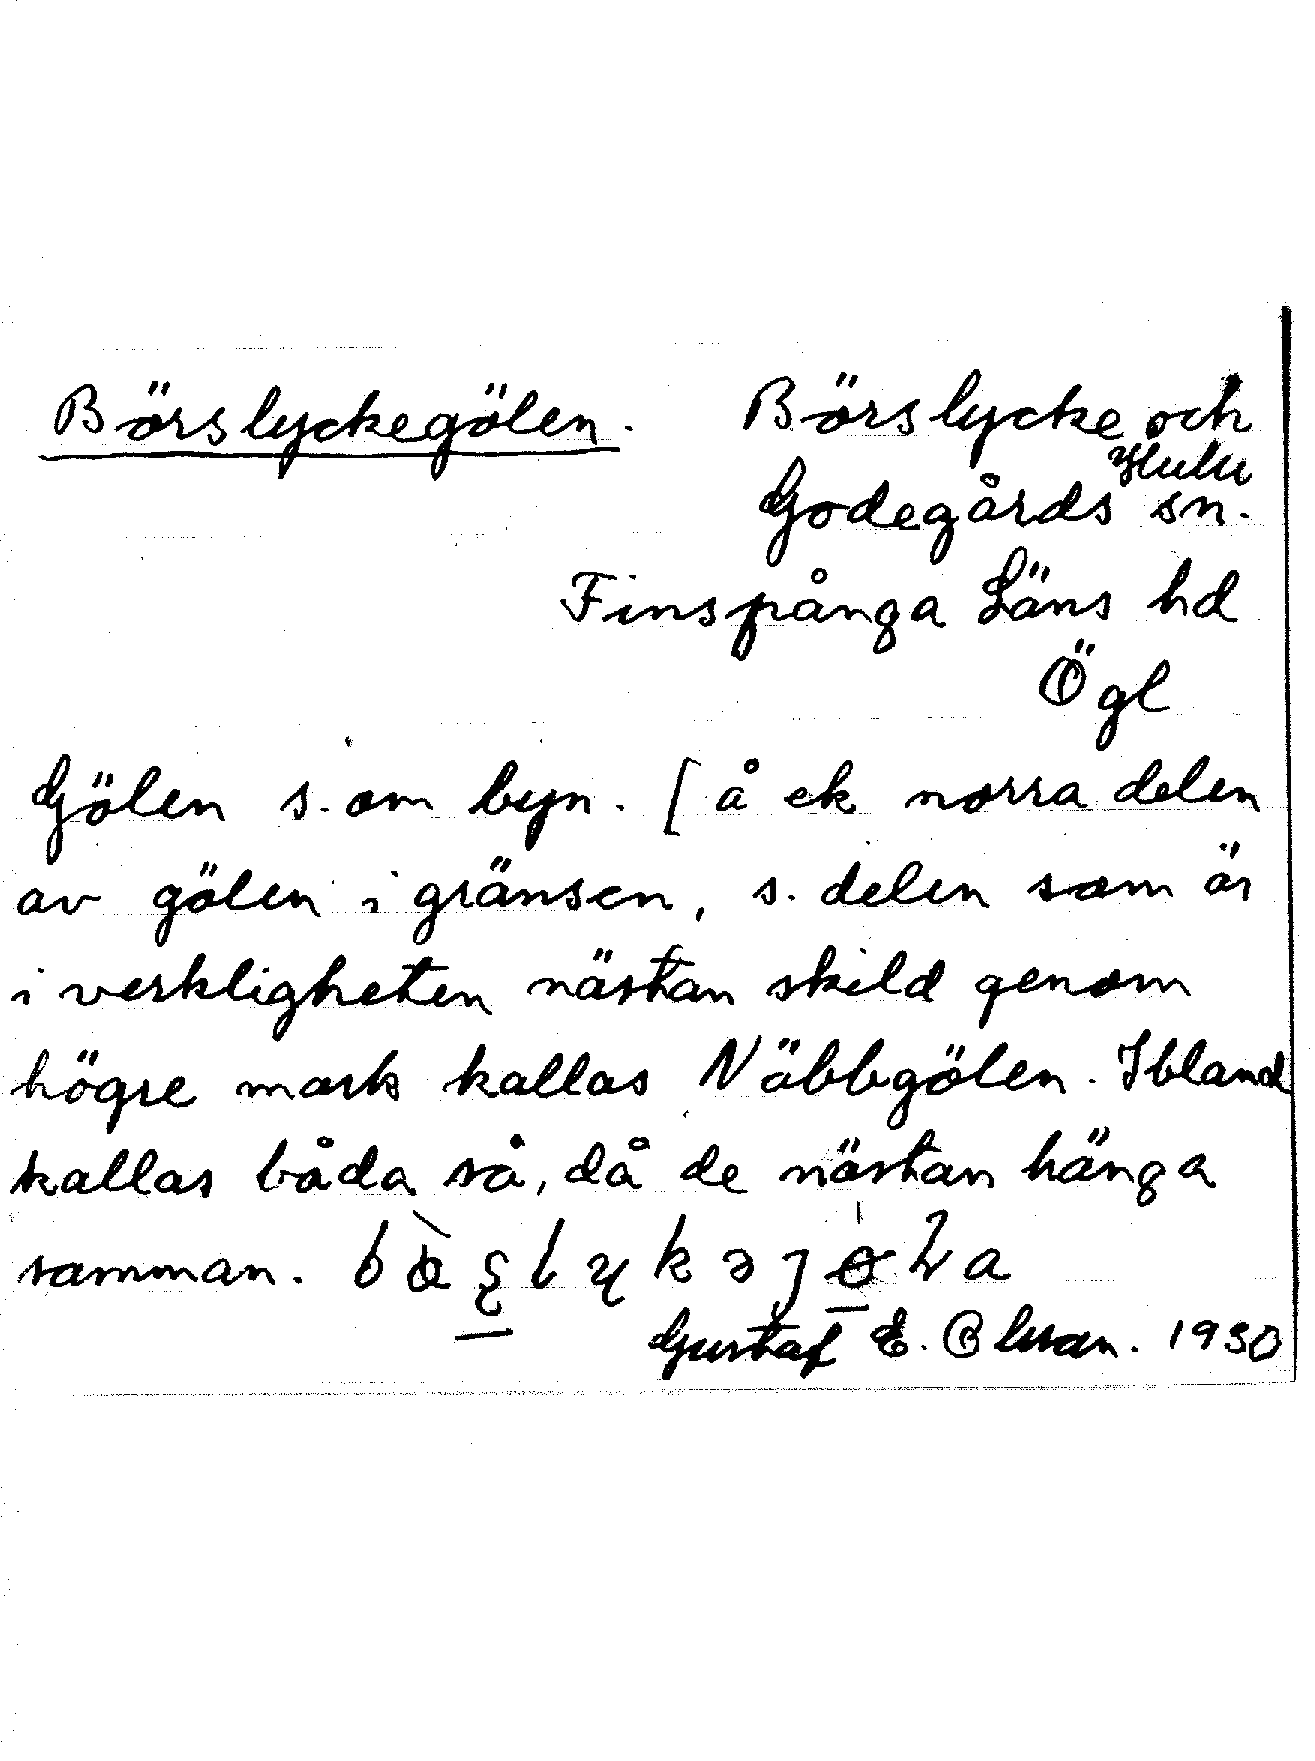 Börslyckegölen. Börslycke och
Hulu
Godegårds sn.
Finspånga Läns hd
Ögl
Gölen s. om byn. [å ek norra delen
av gölen i gränsen, s. delen som är
i verkligheten nästan skild genom
högre mark kallas Näbbgölen. Ibland
kallas båda så, då de nästan hänga
samman.
Gustaf E. Olsson. 1930